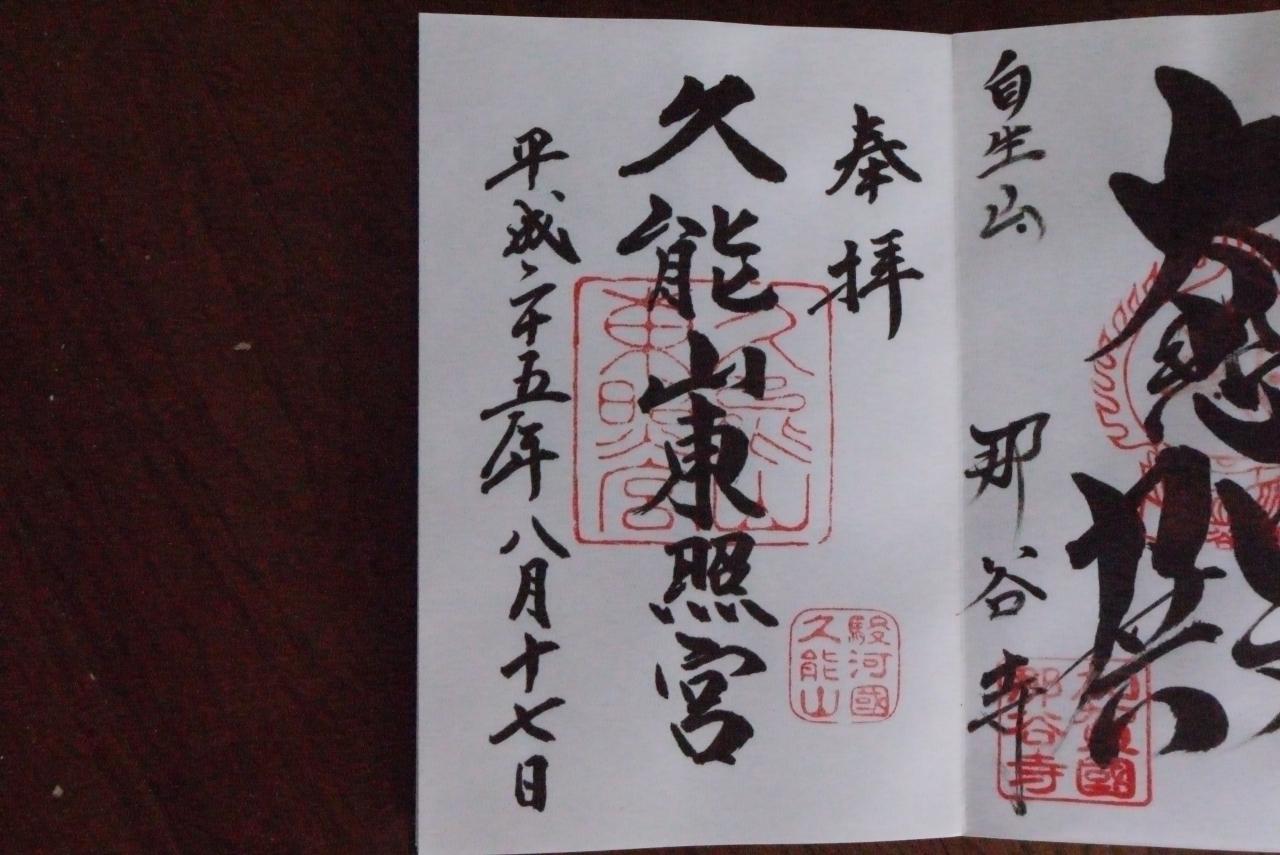 自生山
那谷寺
奉拝
久能山東照宮
平成二十五年八月十七日
久能山
東照宮
駿河國
久能山
那谷寺